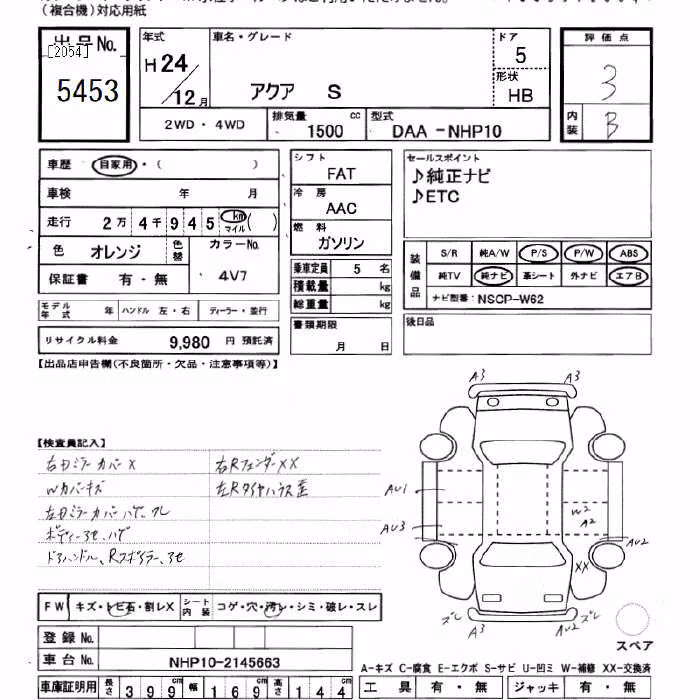 (複合機)対応用紙
出品No.
[2054]
5453
年式
H 24
12 月
車名・グレード
アクア S
ドア
5
形状
HB
2WD・4WD
排気量
1500 cc
型式
DAA -NHP10
評価点
3
内装
B
車歴 自家用・( )
車検 年 月
走行 2万 4千 9 4 5 km マイル ( )
色 オレンジ 色替 カラーNo.
保証書 有・無 4V7
モデル年式 年 ハンドル 左・右 ディーラー・並行
リサイクル料金 9,980 円 預託済
シフト
FAT
冷房
AAC
燃料
ガソリン
乗車定員 5 名
積載量 kg
総重量 kg
書類期限
月 日
セールスポイント
♪純正ナビ
♪ETC
装備品
S/R 純A/W P/S P/W ABS
純TV 純ナビ 革シート 外ナビ エアB
ナビ型番: NSCP-W62
後日品
【出品店申告欄(不良箇所・欠品・注意事項等)】
【検査員記入】
右ドミラーカバーX 右RフェンダーXX
Wカバーキズ 左Rタイヤハウス歪
左ドミラーカバーハゲ、ワレ
ボディー
ドアハンドル、Rスポイラー
A3 A3
AU1
AU3
W2
A2
AU2
XX
ズレ A3 AU2 ズレ
スペア
FW キズ・トビ石・割レX シート内装 コゲ・穴・汚レ・シミ・破レ・スレ
登録No.
車台No. NHP10-2145663
車庫証明用 長さ 399cm 幅 169cm 高さ 144cm
A-キズ C-腐食 E-エクボ S-サビ U-凹ミ W-補修 XX-交換済
工具 有・無 ジャッキ 有・無